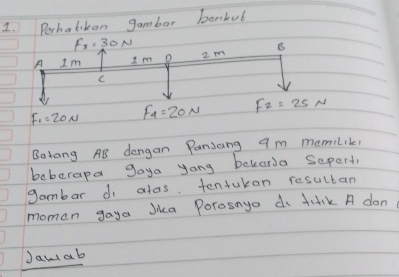 1. Perhatikan gambar berikut
F3=30N
A 1m 1m D 2m B
C
F1=20N F4=20N F2=25N
Batang AB dengan Panjang 4m memiliki
beberapa gaya yang bekerja seperti
gambar di atas. tentukan resultan
momen gaya Jika Porosnya di titik A dan
Jawab